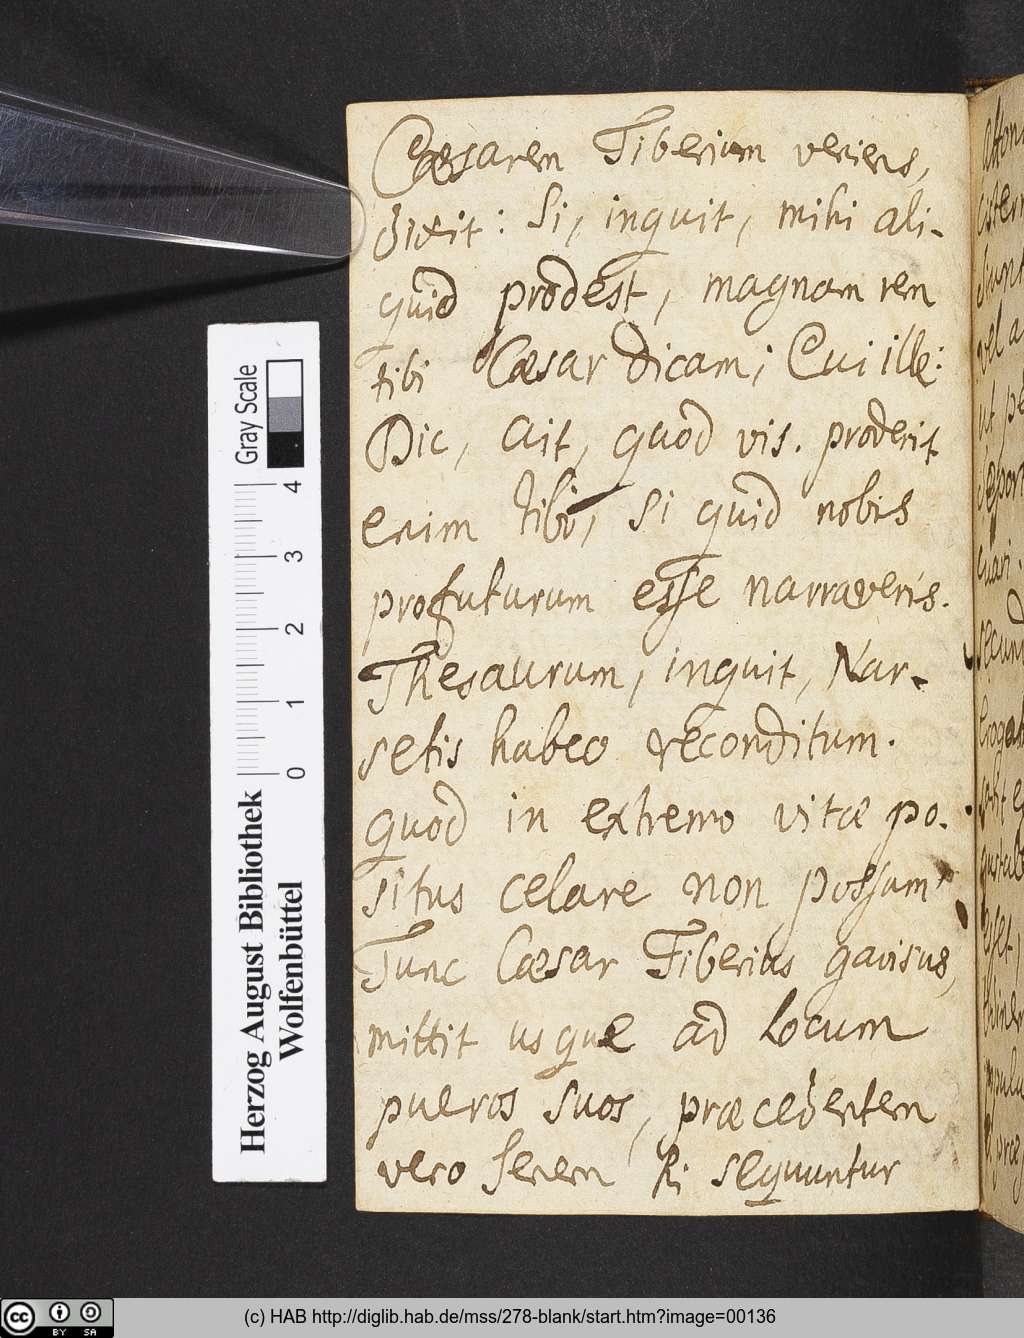 Cæsarem Tiberium veniens,
dixit: Si, inquit, mihi ali-
quid prodest, magnam rem
tibi Cæsar dicam; Cui ille:
Dic, ait, quod vis. proderit
enim tibi, si quid nobis
profuturum esse narraveris.
Thesaurum, inquit, Nar-
setis habeo reconditum.
quod in extremo vitæ po-
situs celare non possum.
Tunc Cæsar Tiberius gavisus,
mittit usque ad Locum
pueros suos, præcedentem
vero senem hi sequuntur
Gray Scale
4
3
2
1
0
Herzog August Bibliothek
Wolfenbüttel
cc BY SA
(c) HAB http://diglib.hab.de/mss/278-blank/start.htm?image=00136